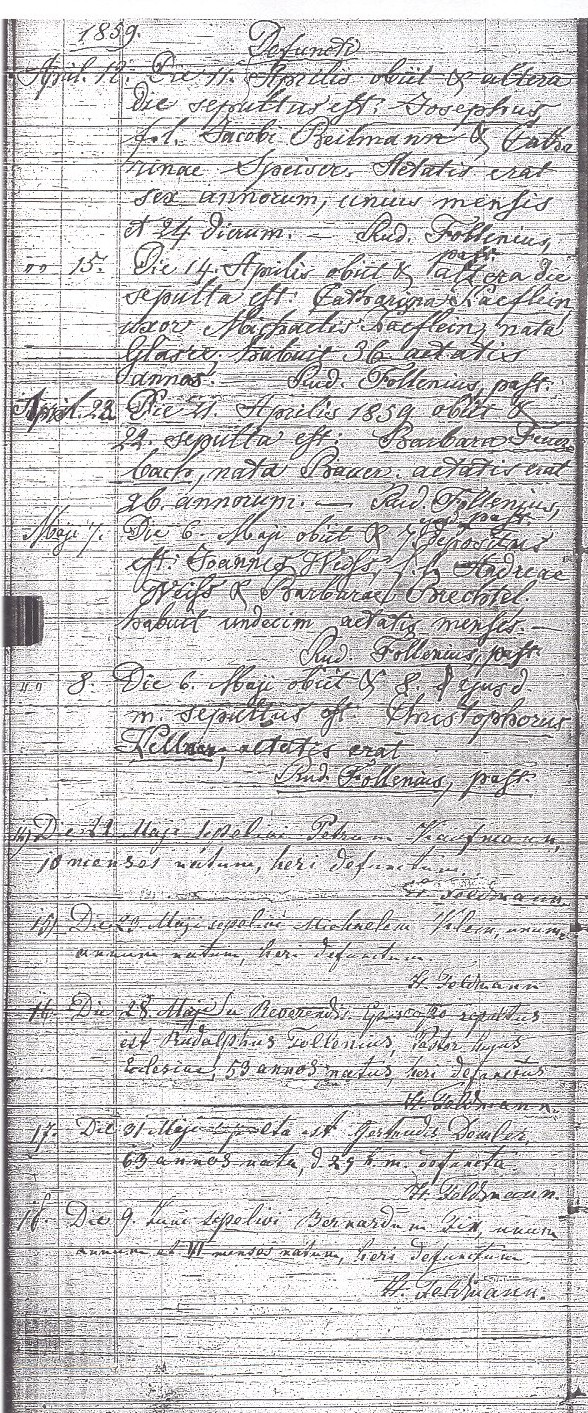 1859.
Defuncti
April. 12. Die 11. Aprilis obiit & altera
die sepultus est: Josephus
f. l. Jacobi Beilmann & Catha
rinae Speiser. Aetatis erat
sex annorum, unius mensis
et 24 dierum. — Rud. Follenius,
past.
"" 15. Die 14. Aprilis obiit & altera die
sepulta est: Catharina Kaeflein,
uxor Michaelis Kaeflein, nata
Glaser. habuit 36 aetatis
annos. — Rud. Follenius, past.
April. 22. Die 21. Aprilis 1859 obiit &
22. sepulta est: Barbara Feuer
bach, nata Bauer. aetatis erat
26. annorum. — Rud. Follenius,
past.
Maji 7. Die 6. Maji obiit & 7. depositus
est: Joannes Weiss, f. l. Andreae
Weiss & Barbarae Brechtel
habuit undecim aetatis menses. —
Rud. Follenius, past.
"" 8. Die 6. Maji obiit & 8. ejusd.
m. sepultus est. Christophorus
aetatis erat
Rud. Follenius, past.
14) Die 21 Maji sepelivi Petrum Kaufmann,
10 menses natum, heri defunctum.
H. Feldmann.
15) Die 23. Maji sepelivi Michaelem Klein, unum
annum natum, heri defunctum.
H. Feldmann
16. Die 28. Maji a Reverendis. Episcopo sepultus
est Rudolphus Follenius, Pastor hujus
Ecclesiae, 53 annos natus, heri defunctus
H. Feldmann.
17. Die 31 Maji sepulta est Gertrudis
63 annos nata, d. 29 h. m. defuncta.
H. Feldmann.
18. Die 9. Juni sepelivi Bernardum Fix, unum
annum et VI menses natum, heri defunctum.
H. Feldmann.